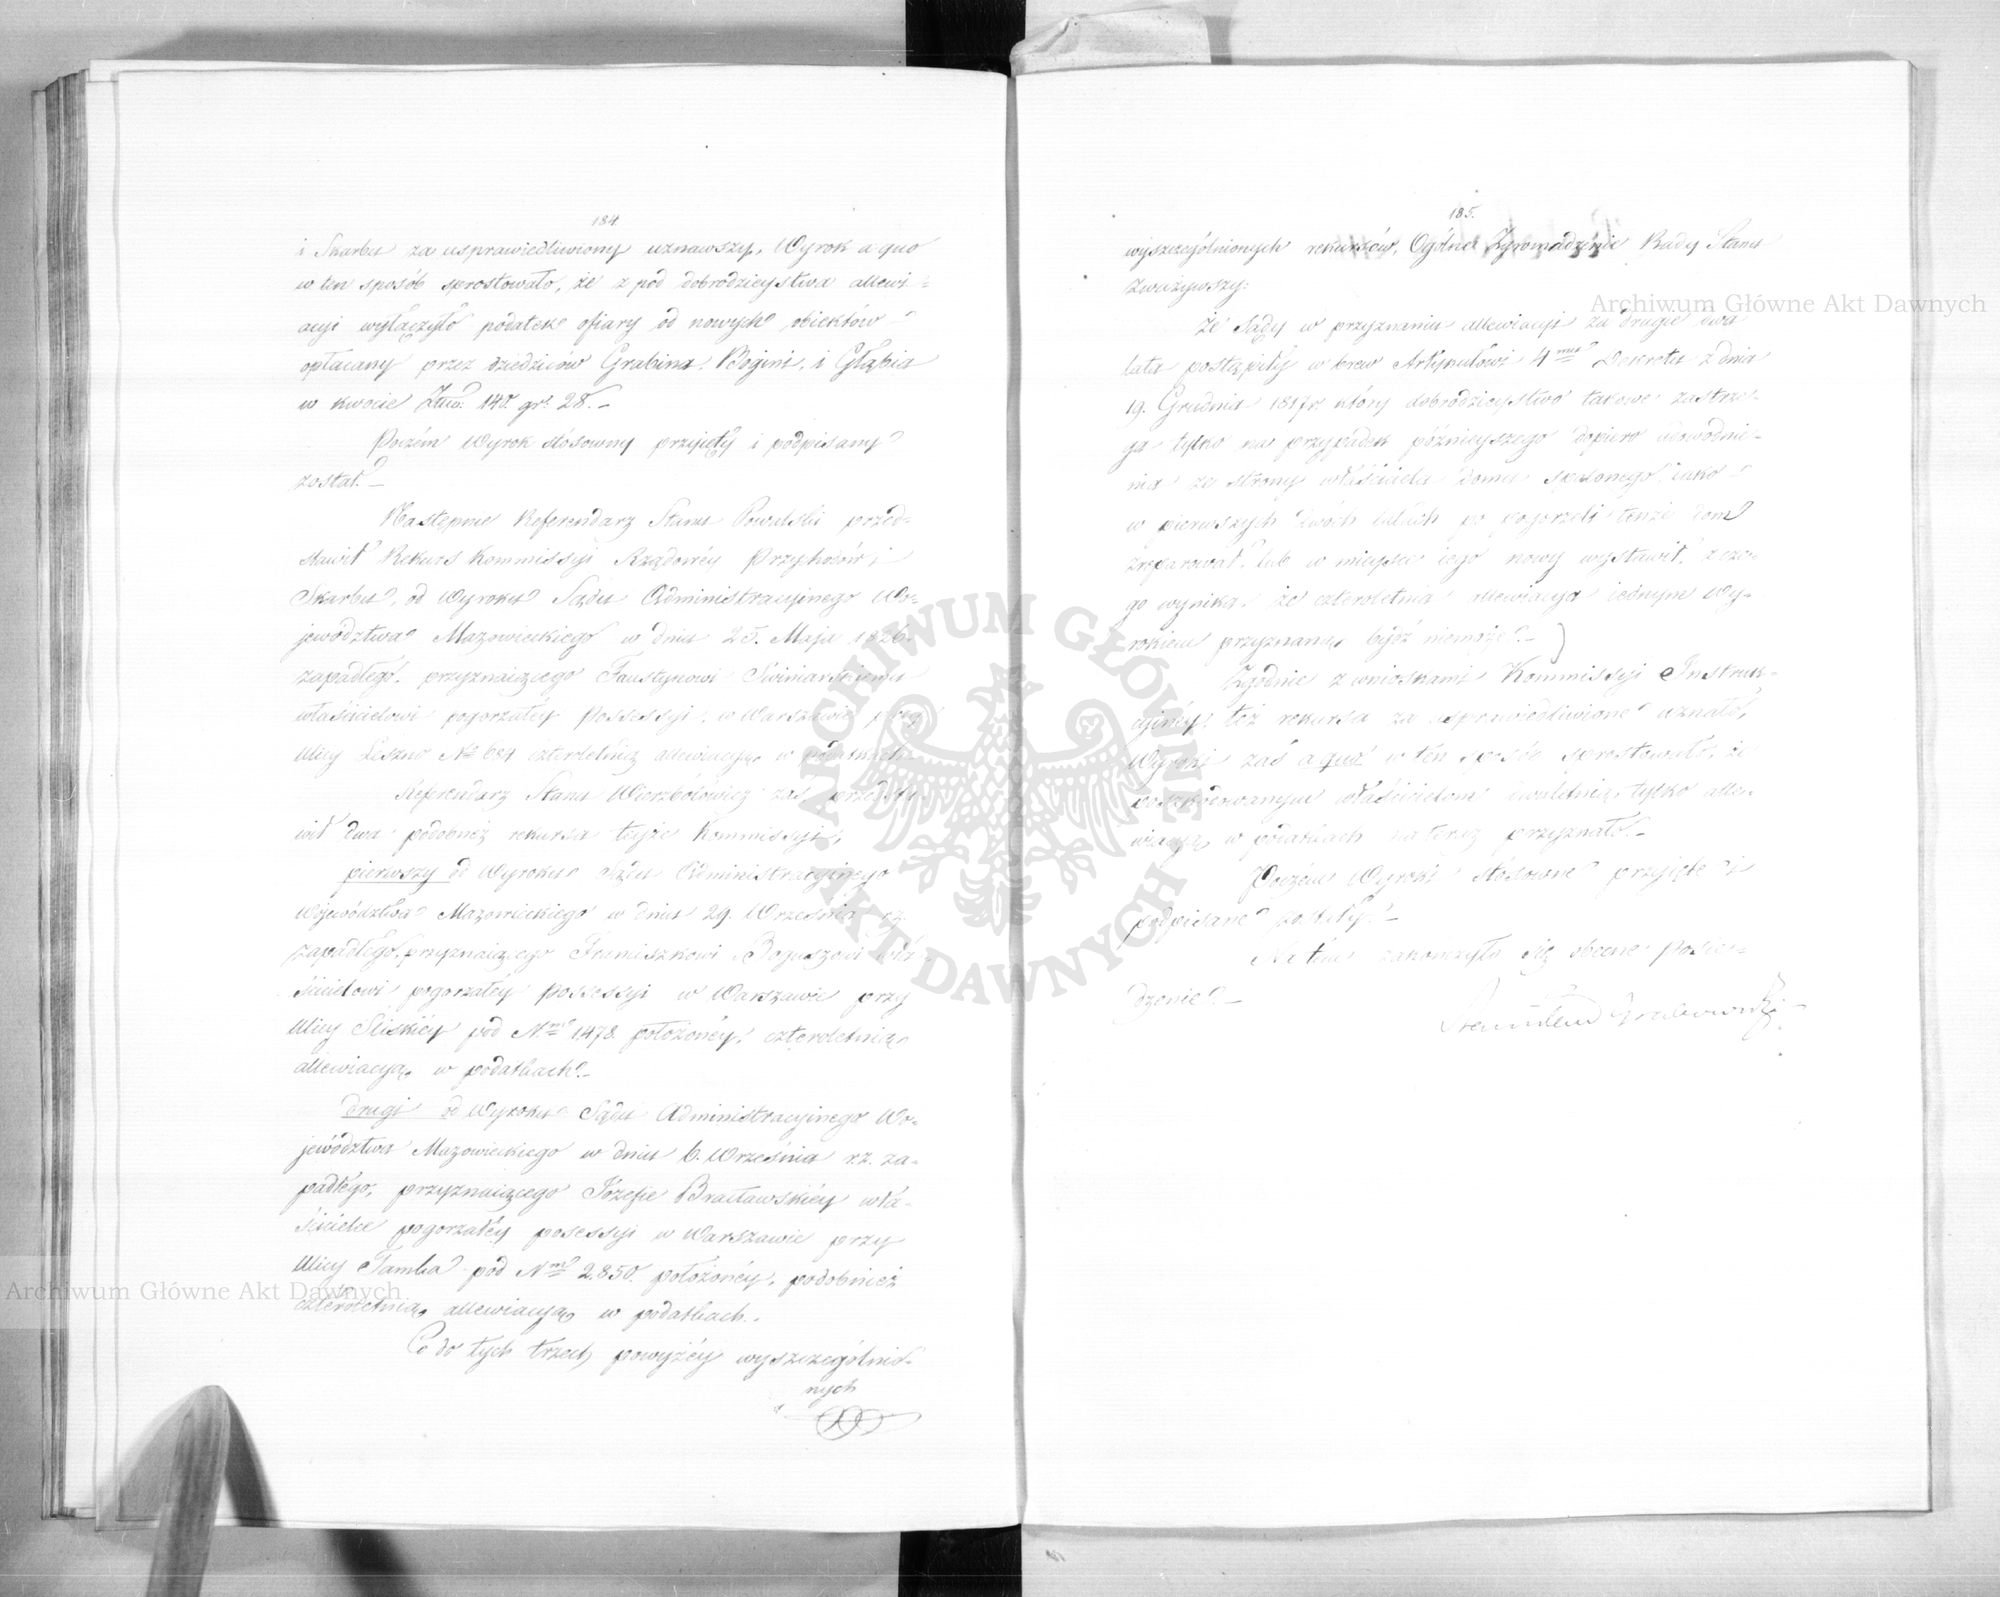 184.
i Skarbu za usprawiedliwiony uznawszy, Wyrok a quo
w ten sposób sprostowało, że z pod dobrodzieystwa allewi-
acyi wyłączyło podatek ofiary od nowych obiektów
opłacany przez dziedziców Grabina, Bogini, i Głąbia
w kwocie Złto: 140. gr. 28.-
Poczém Wyrok stósowny przyięty i podpisany
został.-
Następnie Referendarz Stanu Powalski przed-
stawił Rekurs Kommissyi Rządowéy Przychodów i
Skarbu, od Wyroku Sądu Administracyinego Wo-
jewództwa Mazowieckiego w dniu 25. Maja 1826.
zapadłego, przyznaiącego Faustynowi Swiniarskiemu
właścicielowi pogorzałey Possessyi, w Warszawie przy
Ulicy Leszno No 684 czteroletnią allewiacyą w podatkach.-
Referendarz Stanu Wierzbołowicz zaś przedsta-
wił dwa podobnéż rekursa teyże Kommissyi,
pierwszy od Wyroku Sądu Administracyinego
Województwa Mazowieckiego w dniu 29. Września r.z.
zapadłego, przyznaiącego Franciszkowi Boguszowi wła-
ścicielowi pogorzałéy Possessyi w Warszawie przy
Ulicy Sliskiéy pod Nm 1478. położonéy, czteroletnią
allewiacyą w podatkach.-
drugi od Wyroku Sądu Administracyinego Wo-
jewództwa Mazowieckiego w dniu 6. Września r.z. za-
padłego, przyznaiącego Józefie Bracławskiéy wła-
ścicielce pogorzałéy posessyi w Warszawie przy
Ulicy Tamka pod Nm 2,850. położonéy, podobnież
czteroletnią allewiacyą w podatkach.-
Co do tych trzech powyżéy wyszczególnio-
nych
185.
wyszczególnionych rekursów, Ogólne Zgromadzenie Rady Stanu
zważywszy:
Że Sądy w przyznaniu allewiacyi za drugie dwa
lata postąpiły wbrew Artykułowi 4mu Dekretu z dnia
19. Grudnia 1817r. który dobrodzieystwo takowe zastrze-
ga tylko na przypadek późnieyszego dopiero udowodnie-
nia ze strony właściciela domu spalonego, iako
w pierwszych dwóch latach po pogorzeli tenże dom
zreparował, lub w mieysce iego nowy wystawił, z cze-
go wynika, że czteroletnia allewiacya iednym Wy-
rokiem przyznaną bydź niemoże.-
Zgodnie z wnioskami Kommissyi Instruk-
cyinéy, też rekursa za usprawiedliwione uznało,
Wyroki zaś a quo w ten sposób sprostowało, że
poszkodowanym właścicielom dwuletnią tylko alle-
wiacyą w podatkach na teraz przyznało.-
Poczém Wyroki stósowne przyięte i
podpisane zostały.-
Na tém zakończyło się obecne posie-
dzenie.-
Stanisław Grabowski
Archiwum Główne Akt Dawnych
Archiwum Główne Akt Dawnych
ARCHIWUM GŁÓWNE AKT DAWNYCH